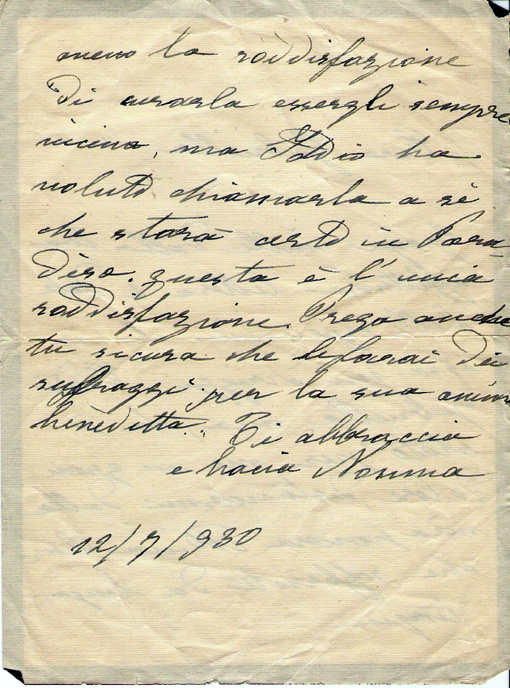 meno la soddisfazione
di curarla essergli sempre
vicino, ma Iddio ha
voluto chiamarla a sè
che starà certo in Para
diso. questa è l'unica
soddisfazione. Prega anche
tu sicura che le farai dei
suffraggi per la sua anima
benedetta. Ti abbraccia
e bacia Norma
12/7/930